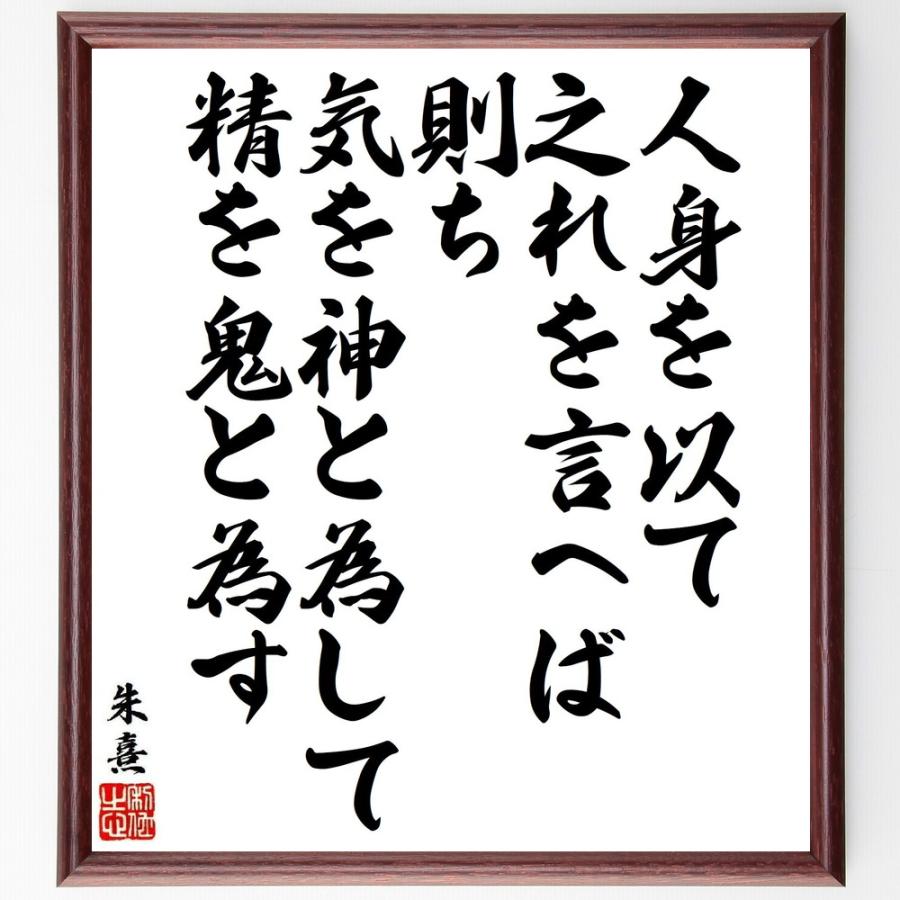 人身を以て
之れを言へば
則ち
気を神と為して
精を鬼と為す
朱熹